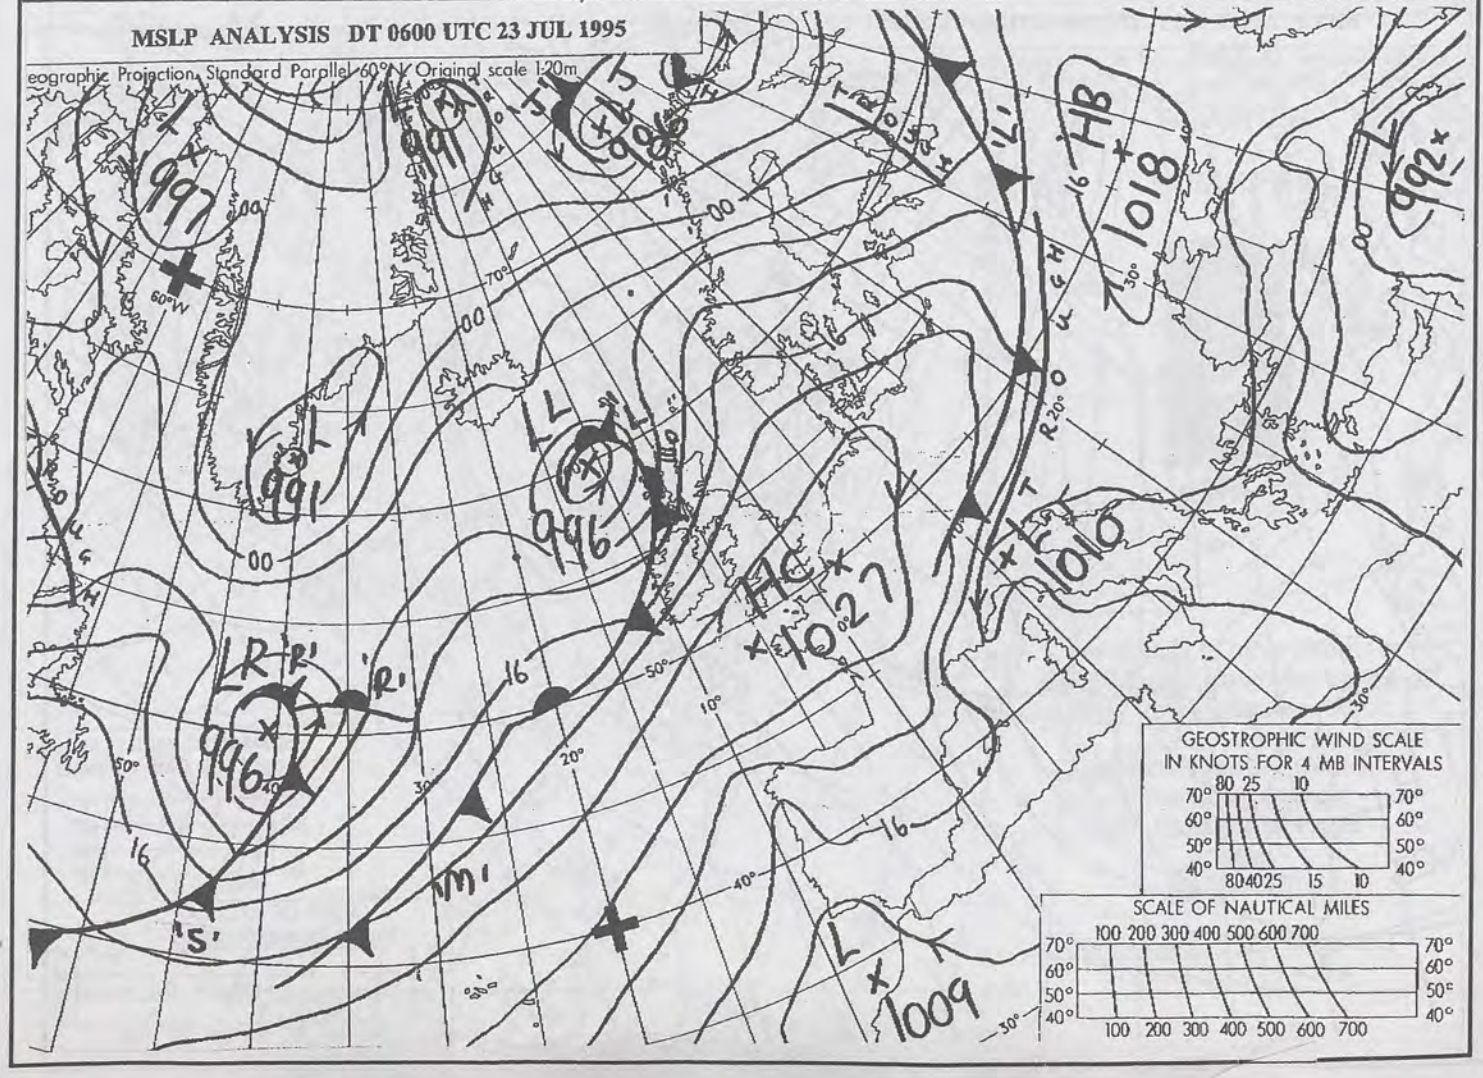 MSLP ANALYSIS DT 0600 UTC 23 JUL 1995
eographic Projection, Standard Parallel 60°N Original scale 1:20m
L
997
00
60°W
L
991
TROUGH
'J'
LJ
986
TROUGH
'L'
HB
1018
16
30°
L
992
00
00
70°
00
16
TROUGH
20°
L
991
LL
'L'
996
00
HC
1027
0°
L
1010
LR
'R'
'R'
996
16
50°
10°
20°
30
40
50°
16
'M'
'S'
16
40°
30°
30°
L
1009
GEOSTROPHIC WIND SCALE
IN KNOTS FOR 4 MB INTERVALS
80 25 10
70° 70°
60° 60°
50° 50°
40° 40°
80 40 25 15 10
SCALE OF NAUTICAL MILES
100 200 300 400 500 600 700
70° 70°
60° 60°
50° 50°
40° 40°
100 200 300 400 500 600 700